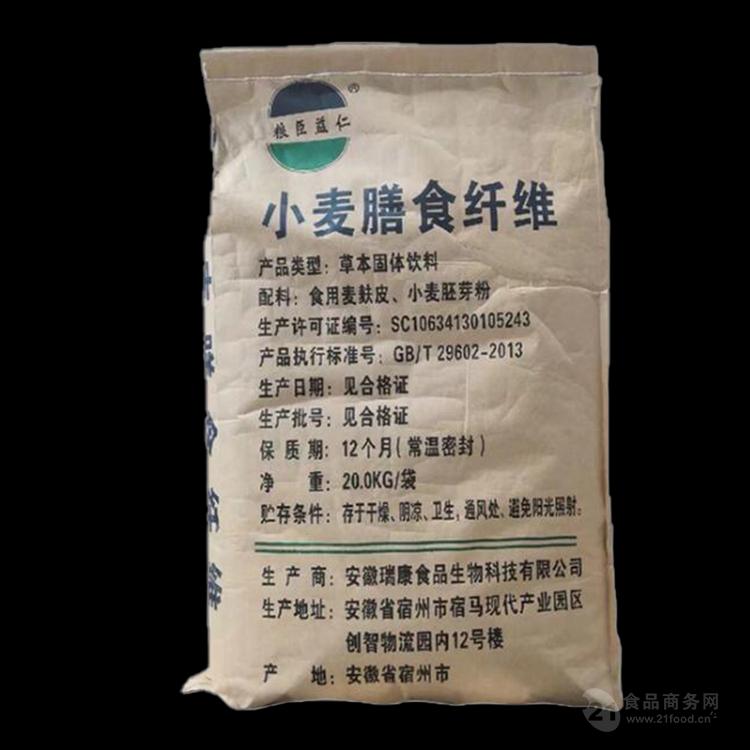 ®
粮臣益仁
小麦膳食纤维
产品类型：草本固体饮料
配料：食用麦麸皮、小麦胚芽粉
生产许可证编号：SC10634130105243
产品执行标准号：GB/T 29602-2013
生产日期：见合格证
生产批号：见合格证
保质期：12个月（常温密封）
净重：20.0KG/袋
贮存条件：存于干燥、阴凉、卫生，通风处、避免阳光照射。
生产商：安徽瑞康食品生物科技有限公司
生产地址：安徽省宿州市宿马现代产业园区
创智物流园内12号楼
产地：安徽省宿州市
膳食纤维
21食品商务网
www.21food.cn